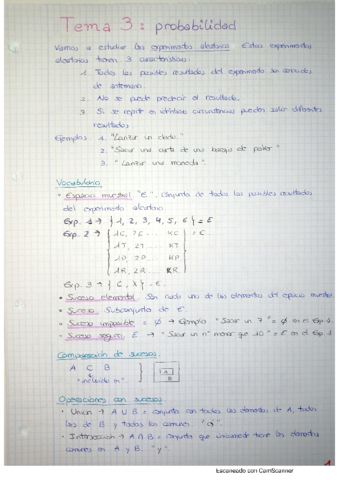 Tema 3: probabilidad
Vamos a estudiar los experimentos aleatorios. Estos experimentos
aleatorios tienen 3 características:
1. Todos los posibles resultados del experimento son conocidos
de antemano.
2. No se puede predecir el resultado.
3. Si se repite en idénticas circunstancias pueden salir diferentes
resultados.
Ejemplos: 1. "Lanzar un dado."
2. "Sacar una carta de una baraja de poker"
3. "Lanzar una moneda".
Vocabulario
• Espacio muestral "E". Conjunto de todos los posibles resultados
del experimento aleatorio.
Exp. 1 → { 1, 2, 3, 4, 5, 6 } = E
Exp. 2 → { 1C, 2C ... KC } = E.
1T, 2T ... KT
1P, 2P ... KP
1R, 2R ... KR
Exp. 3 → { C, X } = E.
• Suceso elemental. Son cada uno de los elementos del espacio muestral
• Suceso. Subconjunto de E
• Suceso imposible = ∅ → Ejemplo "Sacar un 7" = ∅ en el Exp. 1.
• Suceso seguro. E → "Sacar un nº menor que 10" = E en el Exp. 1
Comparación de sucesos.
A ⊂ B
"incluido en"
Operaciones con sucesos
• Unión → A ∪ B = conjunto con todos los elementos de A, todos
los de B y todos los comunes. "o".
• Intersección → A ∩ B = conjunto que únicamente tiene los elementos
comunes en A y B. "y".
1
Escaneado con CamScanner